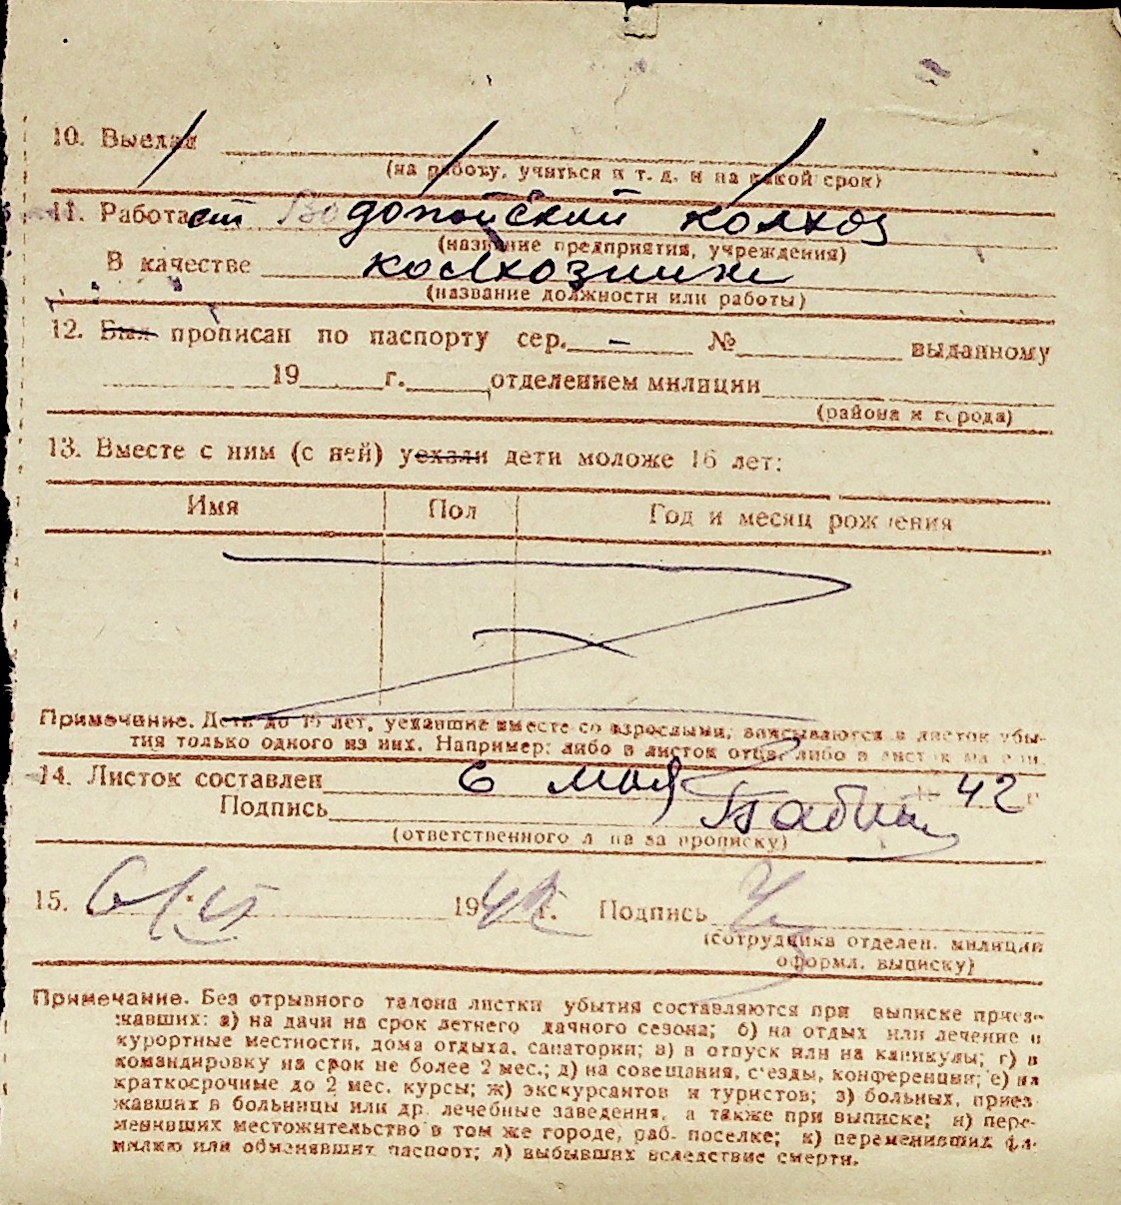 10. Выехал
(на работу, учиться и т. д. и на какой срок)
11. Работает Водопойский колхоз
(название предприятия, учреждения)
В качестве колхозник
(название должности или работы)
12. Был прописан по паспорту сер. — № выданному
19 г. отделением милиции
(района и города)
13. Вместе с ним (с ней) уехали дети моложе 16 лет:
Имя Пол Год и месяц рождения
Примечание. Дети до 15 лет, уехавшие вместе со взрослыми, вписываются в листок убы-
тия только одного из них. Например: либо в листок отца, либо в листок матери.
14. Листок составлен 6 мая 1942 г.
Подпись
(ответственного лица за прописку)
15. 6/VI 1942 г. Подпись
(сотрудника отделен. милиции
оформл. выписку)
Примечание. Без отрывного талона листки убытия составляются при выписке приез-
жавших: а) на дачи на срок летнего дачного сезона; б) на отдых или лечение в
курортные местности, дома отдыха, санатории; в) в отпуск или на каникулы; г) в
командировку на срок не более 2 мес.; д) на совещания, съезды, конференции; е) на
краткосрочные до 2 мес. курсы; ж) экскурсантов и туристов; з) больных, приез-
жавших в больницы или др. лечебные заведения, а также при выписке; и) пере-
менивших местожительство в том же городе, раб. поселке; к) переменивших фа-
милию или обменявших паспорт; л) выбывших вследствие смерти.